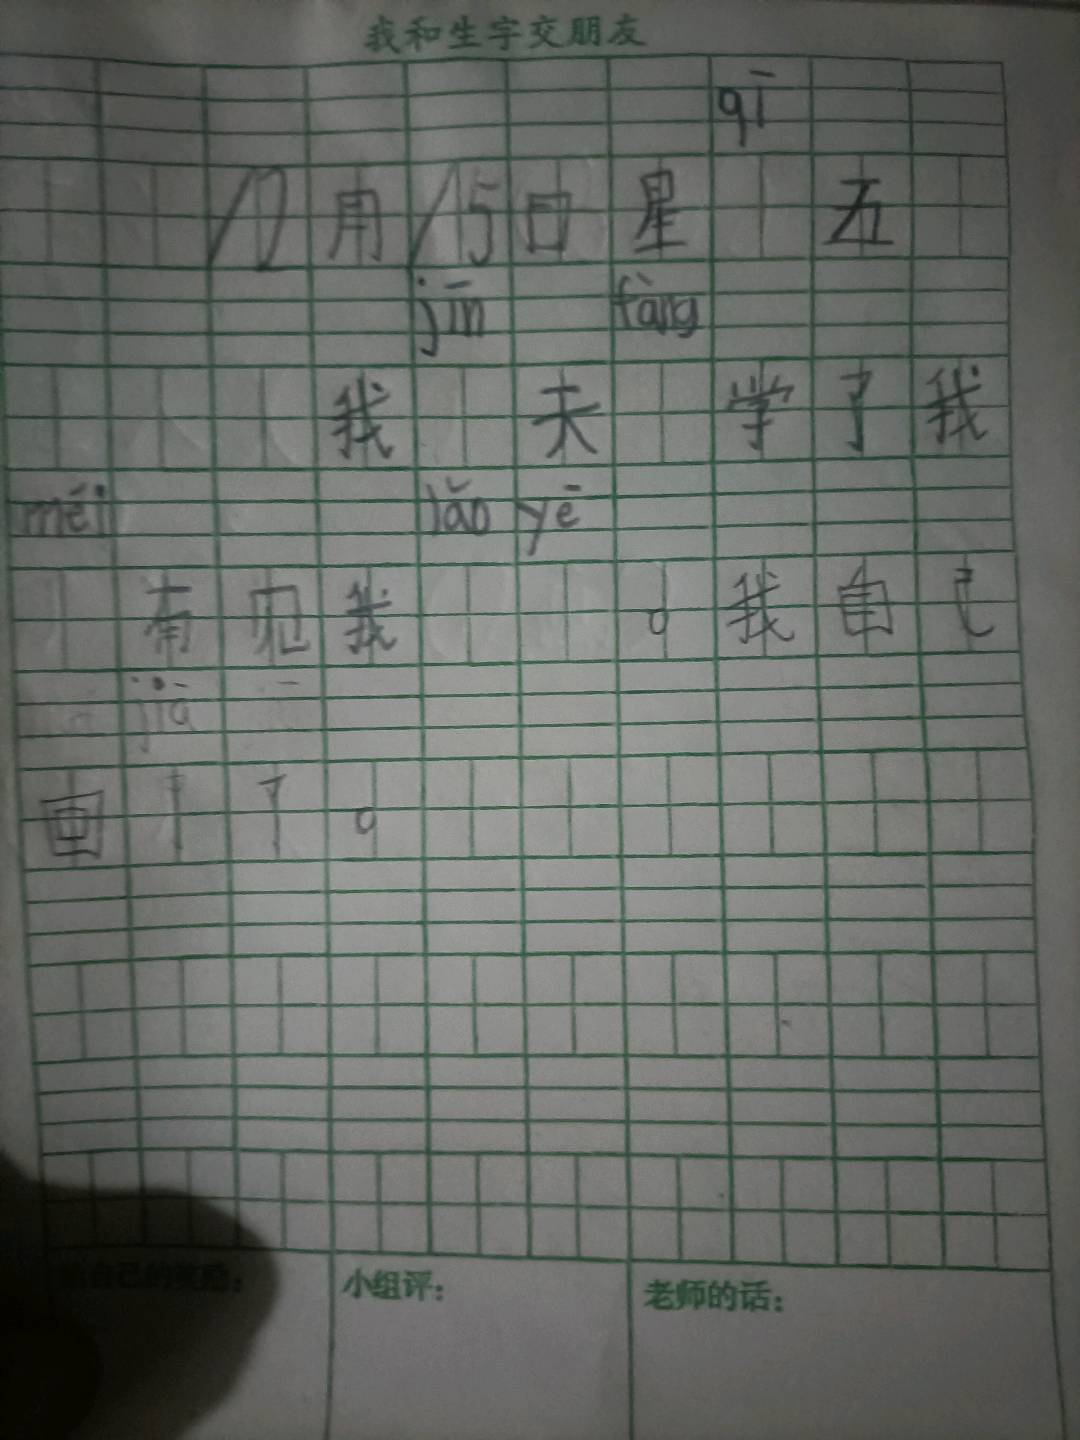 我和生字交朋友
qī
12月15日星 五
jīn fàng
我 天 学了我
méi lǎo yē
有见我 。我自己
jiā
回 了。
自己的奖励：
小组评：
老师的话：